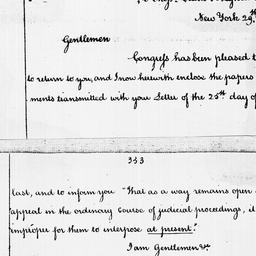 New York 29th
Gentlemen
Congress has been pleased t
to return to you, and I now herewith enclose the papers
ments transmitted with your Letter of the 25th day of
353
last, and to inform you "That as a way remains open
appeal in the ordinary Course of judicial proceedings, it
improper for them to interpose at present."
I am Gentlemen &c